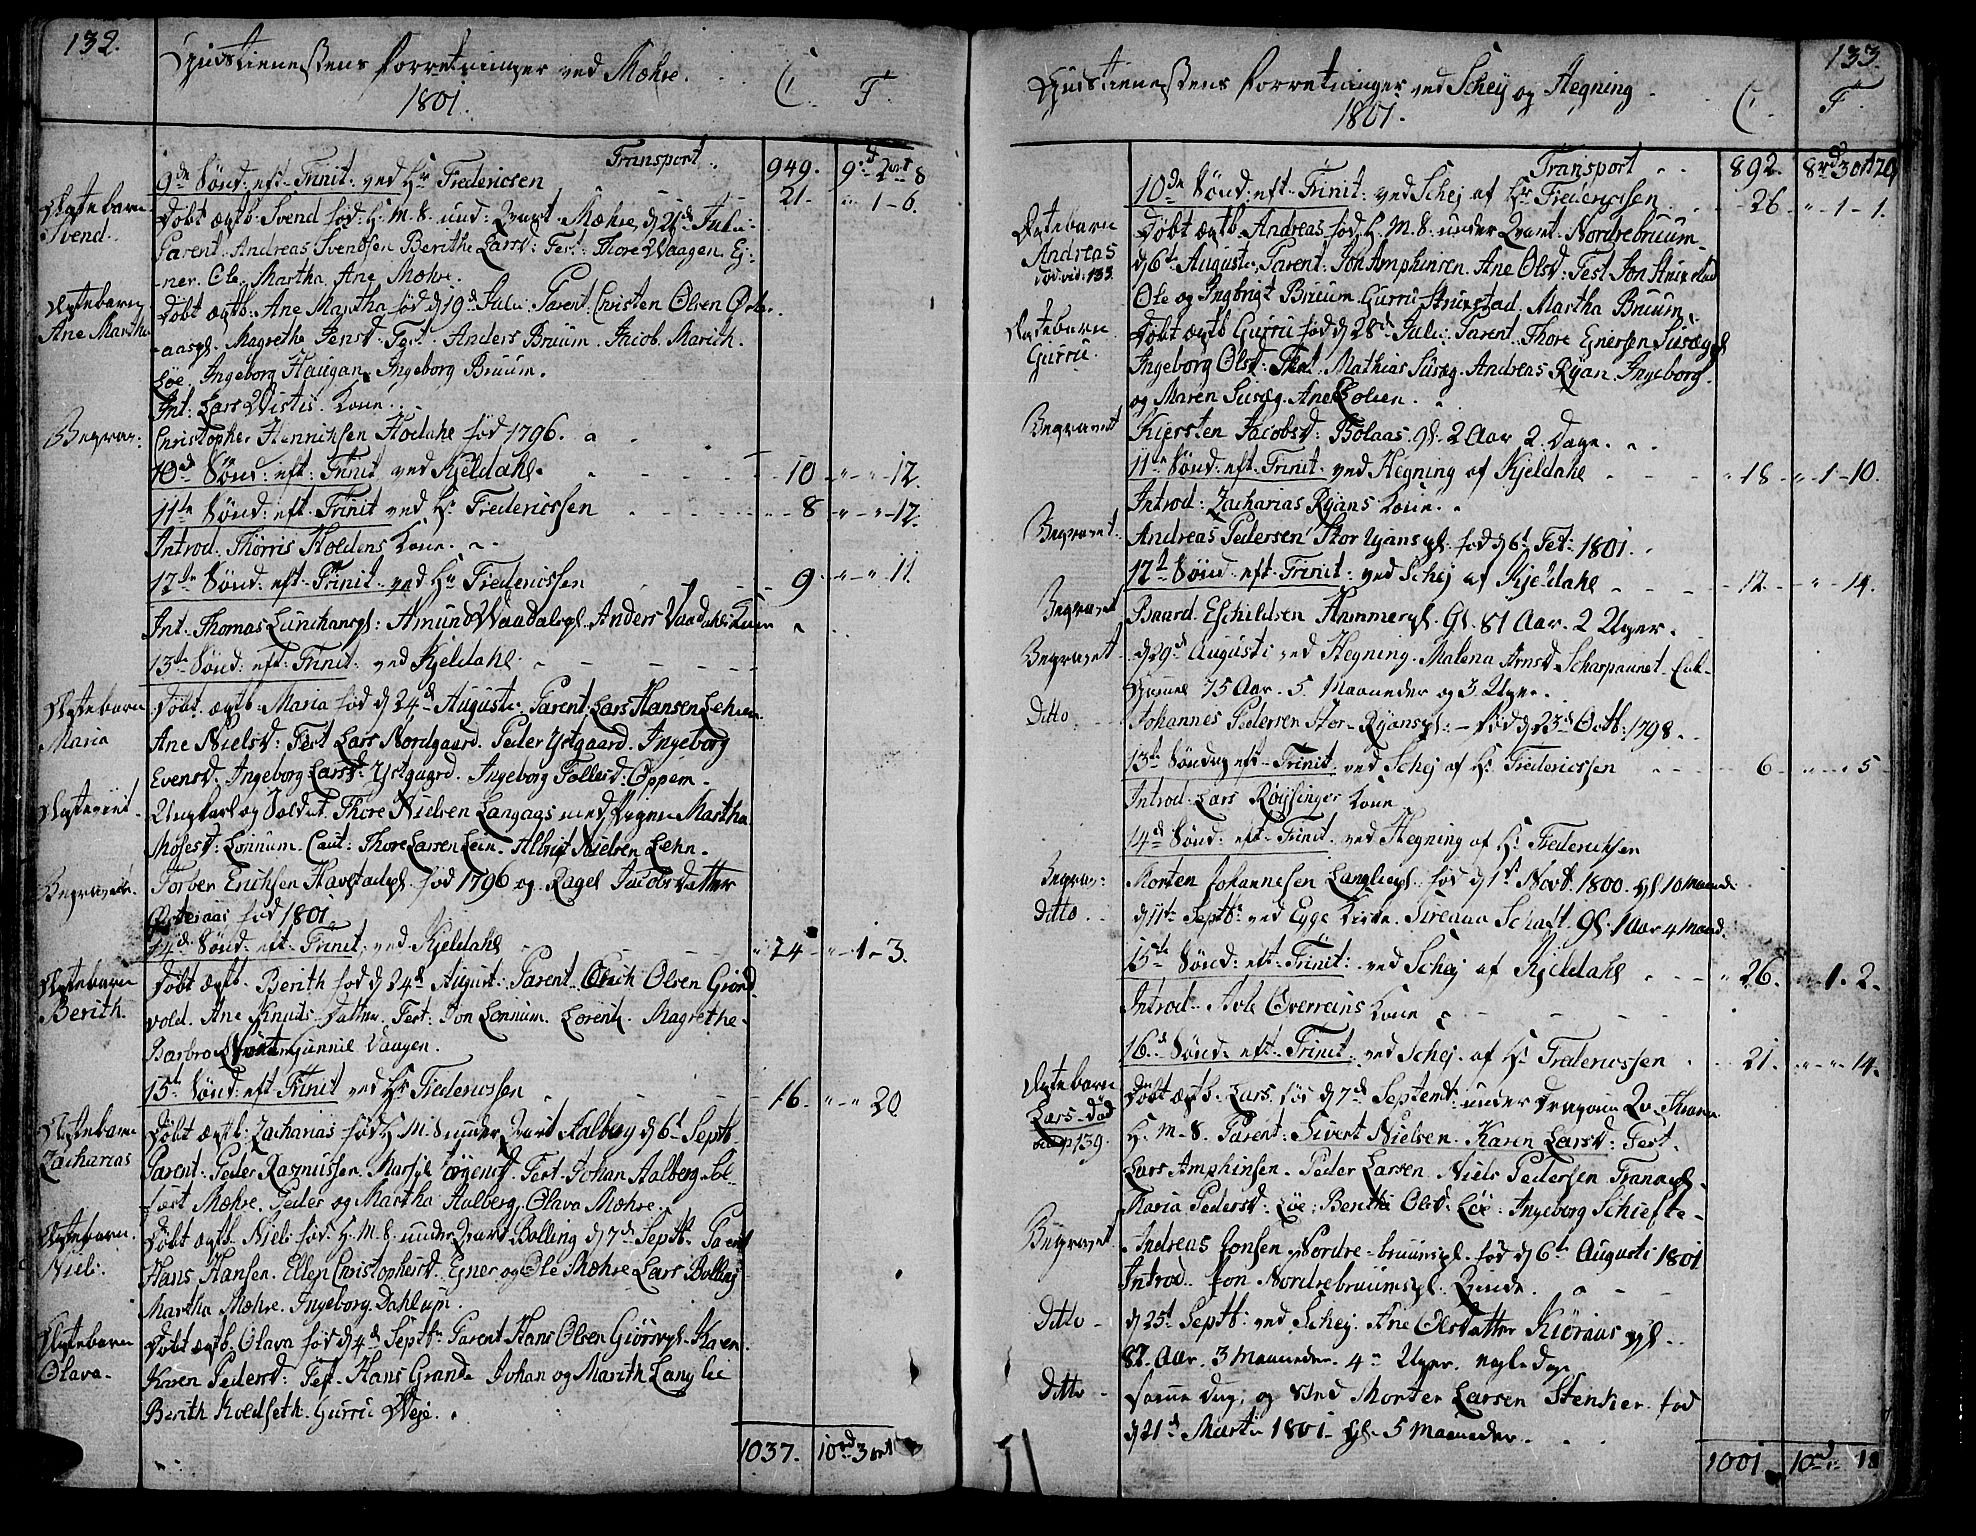 132.
Gudstienestens Forretninger ved Mæhre.
1801.
C. F.
Transport. 949. 9rd 2ort 8
9de Sønd: eft. Trinit: ved Hr Fredericsen 21. " 1 - 6.
Ægtebarn Svend.
Døbt ægtb. Svend fød: H. M. S. und: Qvart. Mæhre, d 21de Juli:
Parent. Andreas Svendsen Berithe Larsd: Test: Thore Waagen. Ej-
-ner. Ole. Martha. Ane Mæhre.
Ægtebarn Ane Martha
Døbt ægtb. Ane Martha fød d 19de Juli: Parent. Christen Olsen Øster-
-aaspl. Magrethe Jensd: Test. Anders Bruum. Jacob. Marith.
Løe. Ingeborg Haugan. Ingeborg Bruum.
Int: Lars Wistis Kone.
Begrav:
Christopher Henrichsen Hoedahl fød 1796.
10de Sønd: eft: Trinit ved Kjeldahl. 10 " " 12.
11te Sønd: eft. Trinit ved Hr Fredericssen 8 " " 12.
Introd. Thørris Holdens Kone.
12te Sønd: eft. Trinit. ved Hr Fredericssen 9 " " 11.
Int. Thomas Lunchanspl: Amund Waadalspl. Anders Vaadahls Koner
13te Sønd: eft: Trinit: ved Kjeldahl.
Ægtebarn Maria
Døbt ægtb. Maria fød d 24de Augusti. Parent. Lars Hansen Lehn
Ane Nielsd: Test Lars Nordgaard. Peder Ystgaard. Ingeborg
Evensd. Ingeborg Larsd: Ystgaard. Ingeborg Tollefsd: Oppem.
Ægteviet
Ungkarl og Soldat Thore Nielsen Langaas med Pigen Martha
Mosesd: Lonnum. Caut: Thore Larsen Lein. Albrigt Nielsen Lehn.
Begravet.
Torber Erichsen Havstadpl. fød 1796 og Ragel Jacobsdatter
Østeraas fød 1801.
14de Sønd: eft. Trinit. ved Kjeldahl 24 " 1 - 3.
Ægtebarn Berith.
Døbt ægtb. Berith fød d 24de August: Parent. Erich Olsen Grønd-
vold. Ane Knuds datter. Test: Jon Lonnum. Lorentz. Magrethe-
Barbro Gunnil Vaagen.
15te Sønd: eft Trinit ved Hr Fredericssen 16. " " 20.
Ægtebarn Zacharias
Døbt ægtb: Zacharias fød H. M. S. under Qvart Aalberg d 6te Septb.
Parent: Peder Rasmussen. Jørgensd. Test. Johan Aalberg. Sel-
fæst Mæhre. Peder og Martha Aalberg. Olava Mæhre.
Ægtebarn. Niels.
Døbt ægtb. Niels fød. H. M. S. under Qvart Bolling d 7de Septb. Parent
Hans Hansen. Ellen Christophersd. Ejner og Ole Mæhre Lars Bolling
Martha Mæhre. Ingeborg Dahlum.
Ægtebarn Olava.
Døbt ægtb. Olava fød d 4de Septb: Parent Hans Olsen Giørvpl. Karen
Karen Pedersd: Test. Hans Grande. Johan og Marith Langlie
Berith Koldseth. Gurru Weje.
1037. 10rd 3ort
133.
Gudstienestens Forretninger ved Schej og Hegning
1801.
C. F.
Transport 892. 8rd 3ort 20
10de Sønd: eft. Trinit: ved Schej af Hr Fredericssen 26 " 1 - 1.
Ægtebarn Andreas død vid: 133.
Døbt ægtb. Andreas fød H. M. S. under Qvart. Nordrebruum
d 6te Augusti. Parent: Jon Amphinsen. Ane Olsd: Test Jon Strinstad
Ole og Ingbrigt Bruum. Gurru Strinstad. Martha Bruum.
Ægtebarn Gurru.
Døbt ægtb Gurru fød d 28de Juli: Parent. Thore Enersen Susægpl
Ingeborg Olsd: Test. Mathias Susæg. Andreas Ryan. Ingeborg
og Maren Susæg. Ane Holien.
Begravet
Kiersten Jacobsd: Bolaas. gl. 2 Aar 2 Dage.
11te Sønd: eft. Trinit. ved Hegning af Kjeldahl 18 " 1 - 10.
Introd: Zacharias Ryans Kone.
Begravet.
Andreas Pedersen Stor Ryanspl. fød d 6te Feb: 1801.
12te Sønd: eft. Trinit: ved Schej af Kjeldahl 12. " 14.
Begravet
Baard Eschildsen Hammerpl. Gl. 81 Aar. 2 Uger.
Begravet
d 29de Augusti ved Hegning. Malena Arnsd Scharpaunet. Enke-
gammel 75 Aar. 5 Maaneder og 3 Uger.
Ditto
Johannes Pedersen Stor-Ryanspl: fød d 23de Octb: 1798.
13te Søndag eft. Trinit. ved Schej af Hr Fredericssen 6 " " 5
Introd. Lars Røysinger Kone
14de Sønd: eft. Trinit. ved Hegning af Hr Fredericksen
Begrav:
Morten Johannesen Langliepl. fød d 1ste Novb. 1800. gl 10 Maand:
Ditto
d 11te Septb: ved Egge Kirke. Sirenna Schaft. Gl. 1 Aar 4 Maand.
15te Sønd: eft. Trinit: ved Schej af Kjeldahl 26. " 1. 2.
Introd. Avle Overreins Kone
16de Sønd: eft. Trinit. ved Schej. af Hr Fredericssen 21. " " 14.
Ægtebarn Lars. død pag 139.
Døbt ægtb. Lars. fød d 7de Septemb: under Dragon Qv.
H. M. S. Parent: Sivert Nielsen. Karen Larsd: Test.
Lars Amphinsen. Peder Larsen. Niels Pedersen Trannespl.
Maria Pedersd: Løe: Berithe Olsd: Løe: Ingeborg Schiefte-
Begravet.
Andreas Jonsen Nordre-bruumspl. fød d 6te Augusti 1801
Introd. Jon Nordrebruumspl. Qvinde.
Ditto
d 25te Septb: ved Schej. Ane Olsdatter Kiøraas gl.
82. Aar. 3 Maaneder. 4 Uger. nogle dage
Ditto
samme dag. og Sted Morten Larsen Stenkier. fød
d 21de Martii 1801. gl. 5 Maaneder.
1001 10rd " 18